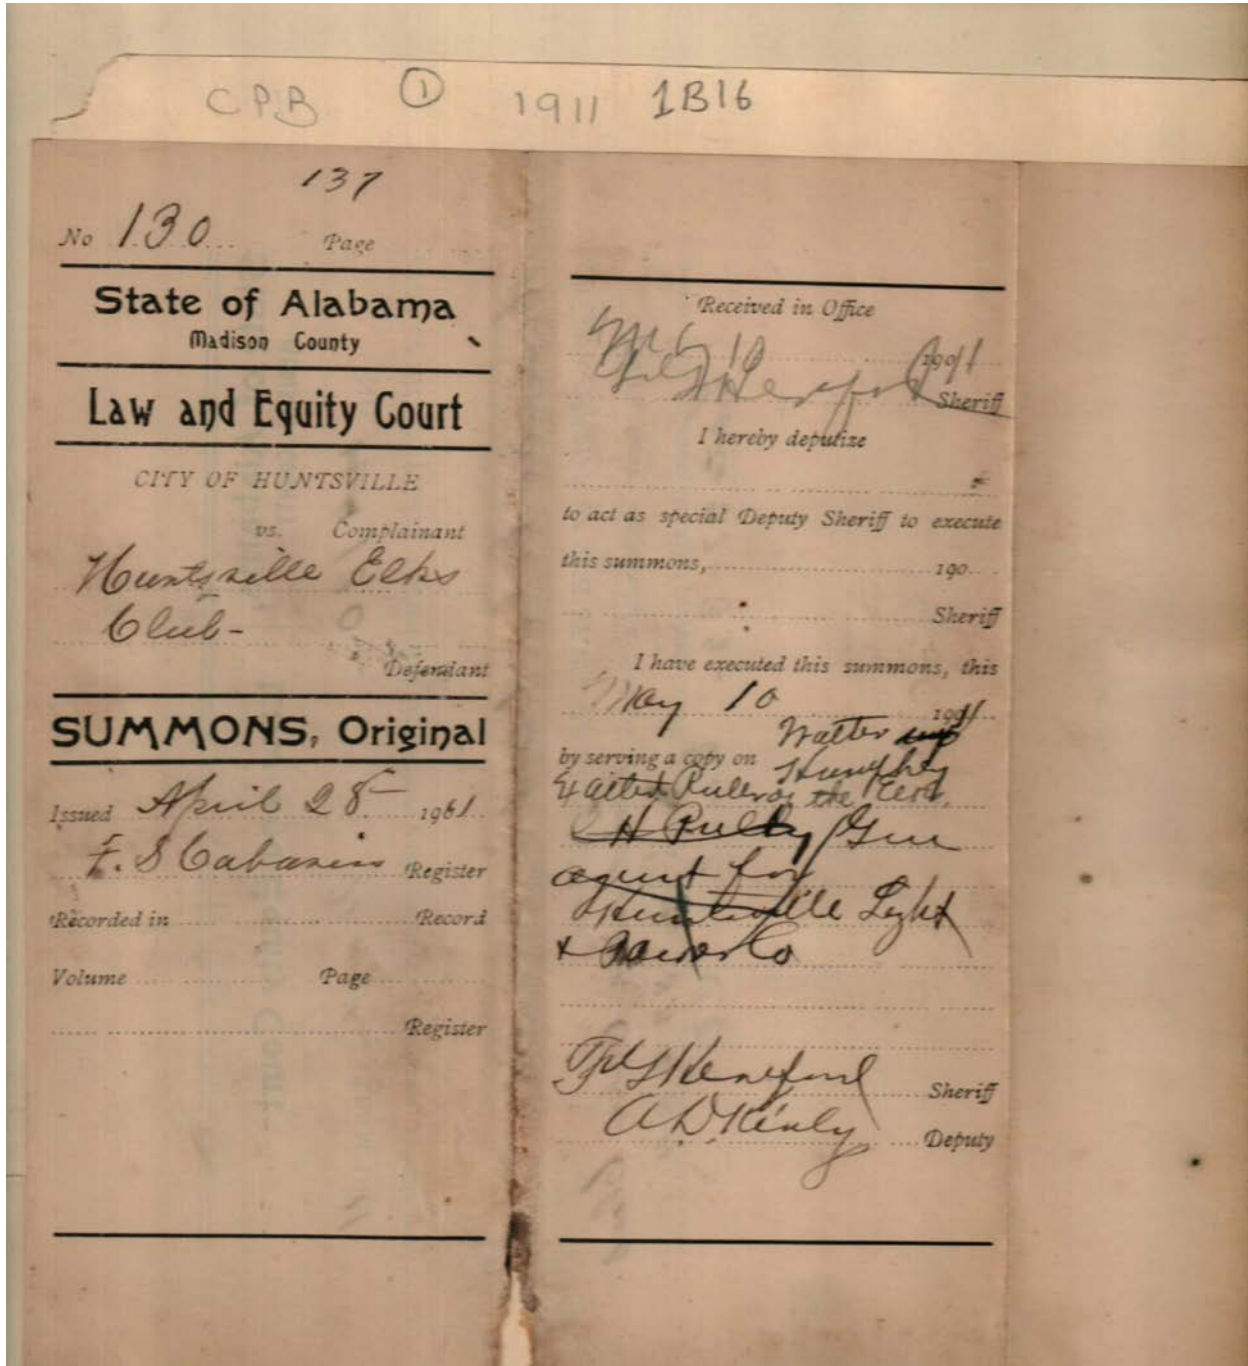 CPB ① 1911 1B16
137
No 130 Page
State of Alabama
Madison County
Law and Equity Court
CITY OF HUNTSVILLE
vs. Complainant
Huntsville Elks
Club-
Defendant
SUMMONS, Original
Issued April 28 1911
F. S Cabaniss Register
Recorded in Record
Volume Page
Register
Received in Office
10 1911
Sheriff
I hereby deputise
to act as special Deputy Sheriff to execute
this summons, 190
Sheriff
I have executed this summons, this
May 10 1911
Walter
by serving a copy on Humphrey
Exalted Ruler of the Elks
C H Pulley Gen
agent for
Huntsville Light
+ Power Co
Sheriff
Deputy